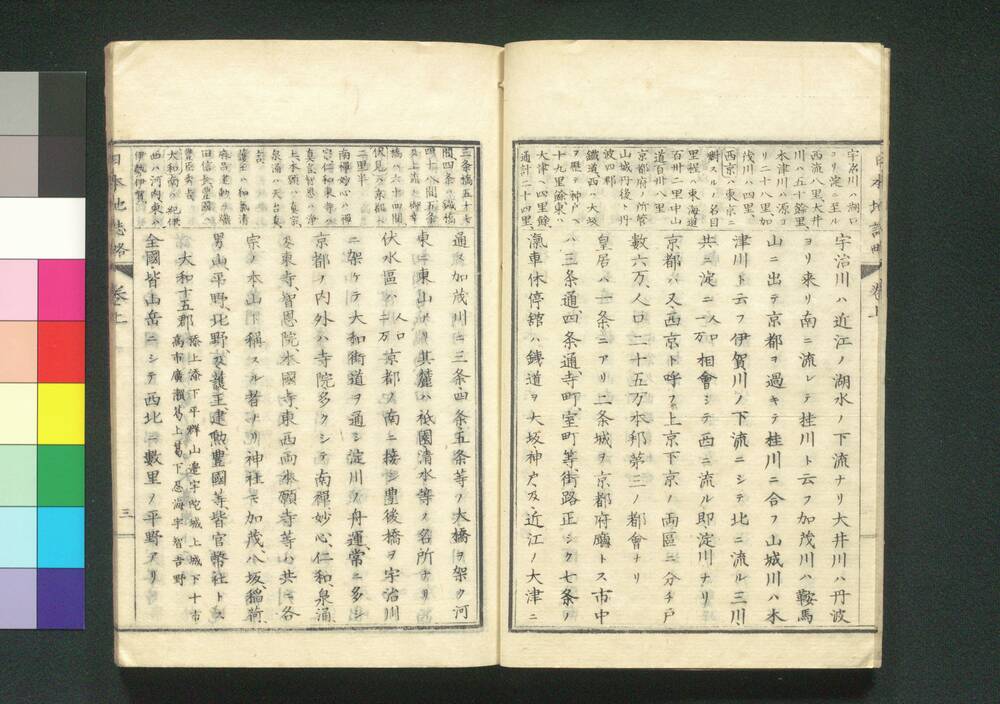 宇治川ハ近江ノ湖水ノ下流ナリ大井川ハ丹波
ヨリ来リ南ニ流レテ桂川ト云フ加茂川ハ鞍馬
山ニ出テ京都ヲ過キテ桂川ニ合フ山城川ハ木
津川ト云フ伊賀川ノ下流ニシテ北ニ流ル三川
共ニ淀人口一万相會シテ西ニ流ル即淀川ナリ
京都ハ又西京ト呼フ上京下京ノ両區ニ分チ戸
數六万、人口二十五万本邦第三ノ都會ナリ
皇居ハ一条ニアリ二条城ヲ京都府廳トス市中
ハ三条通、四条通、寺町、室町等、街路正シク七条ノ
滊車休停舘ハ鉄道ヲ大坂神戸及近江ノ大津ニ
宇治川湖口
ヨリ淀ニ至ル
西流八里大井
川ハ五十餘里
木津川ハ源ヨ
リ二十八里加
茂川ハ四里、
西京ハ東京ニ
對スルノ名目
里程ハ東海道
百卅二里中山
道百卅八里
京都府ノ所管
山城丹後ト丹
波四郡
鐵道西ハ大坂
ヲ歴テ神戸ヘ
十九里餘東ハ
大津ヘ四里餘
通計二十四里
通ス加茂川ニ三条四条五条等ノ大橋ヲ架ク河
東ニ東山アリ其麓ハ祇園清水等ノ名所ナリ
伏水區人口二万京都ノ南ニ接シ豊後橋ヲ宇治川
ニ架ケテ大和街道ヲ通シ淀川ノ舟運、常ニ多シ
京都ノ内外ハ寺院多クシテ南禪、妙心、仁和、泉涌、
東寺、智恩院、本國寺、東西両本願寺等ハ共ニ各
宗ノ本山ト稱スル者ナリ神社ハ加茂、八坂、稲荷、
男山、平野、北野、及護王、建勲、豊國等、皆官幣社トス
大和十五郡 添上添下平群山邊宇陀城上城下十市
高市廣瀬葛上葛下忍海宇智吉野
全國皆山岳ニシテ西北ニ數里ノ平野アリ
三条橋五十七
間四条ハ鐵橋
四十八間五条
橋ハ六十四間
伏見ハ京都ヘ
二里半
南禪妙心ハ禪
宗仁和東寺ハ
真言智恩ハ浄
土本願ハ真宗
泉涌ハ天台真
護王ハ和氣清
麻呂建勲ハ織
田信長豊國ハ
豊臣秀吉
大和南ハ紀伊
西ハ河内東ハ
伊勢伊賀
日本地誌略
卷之上
三